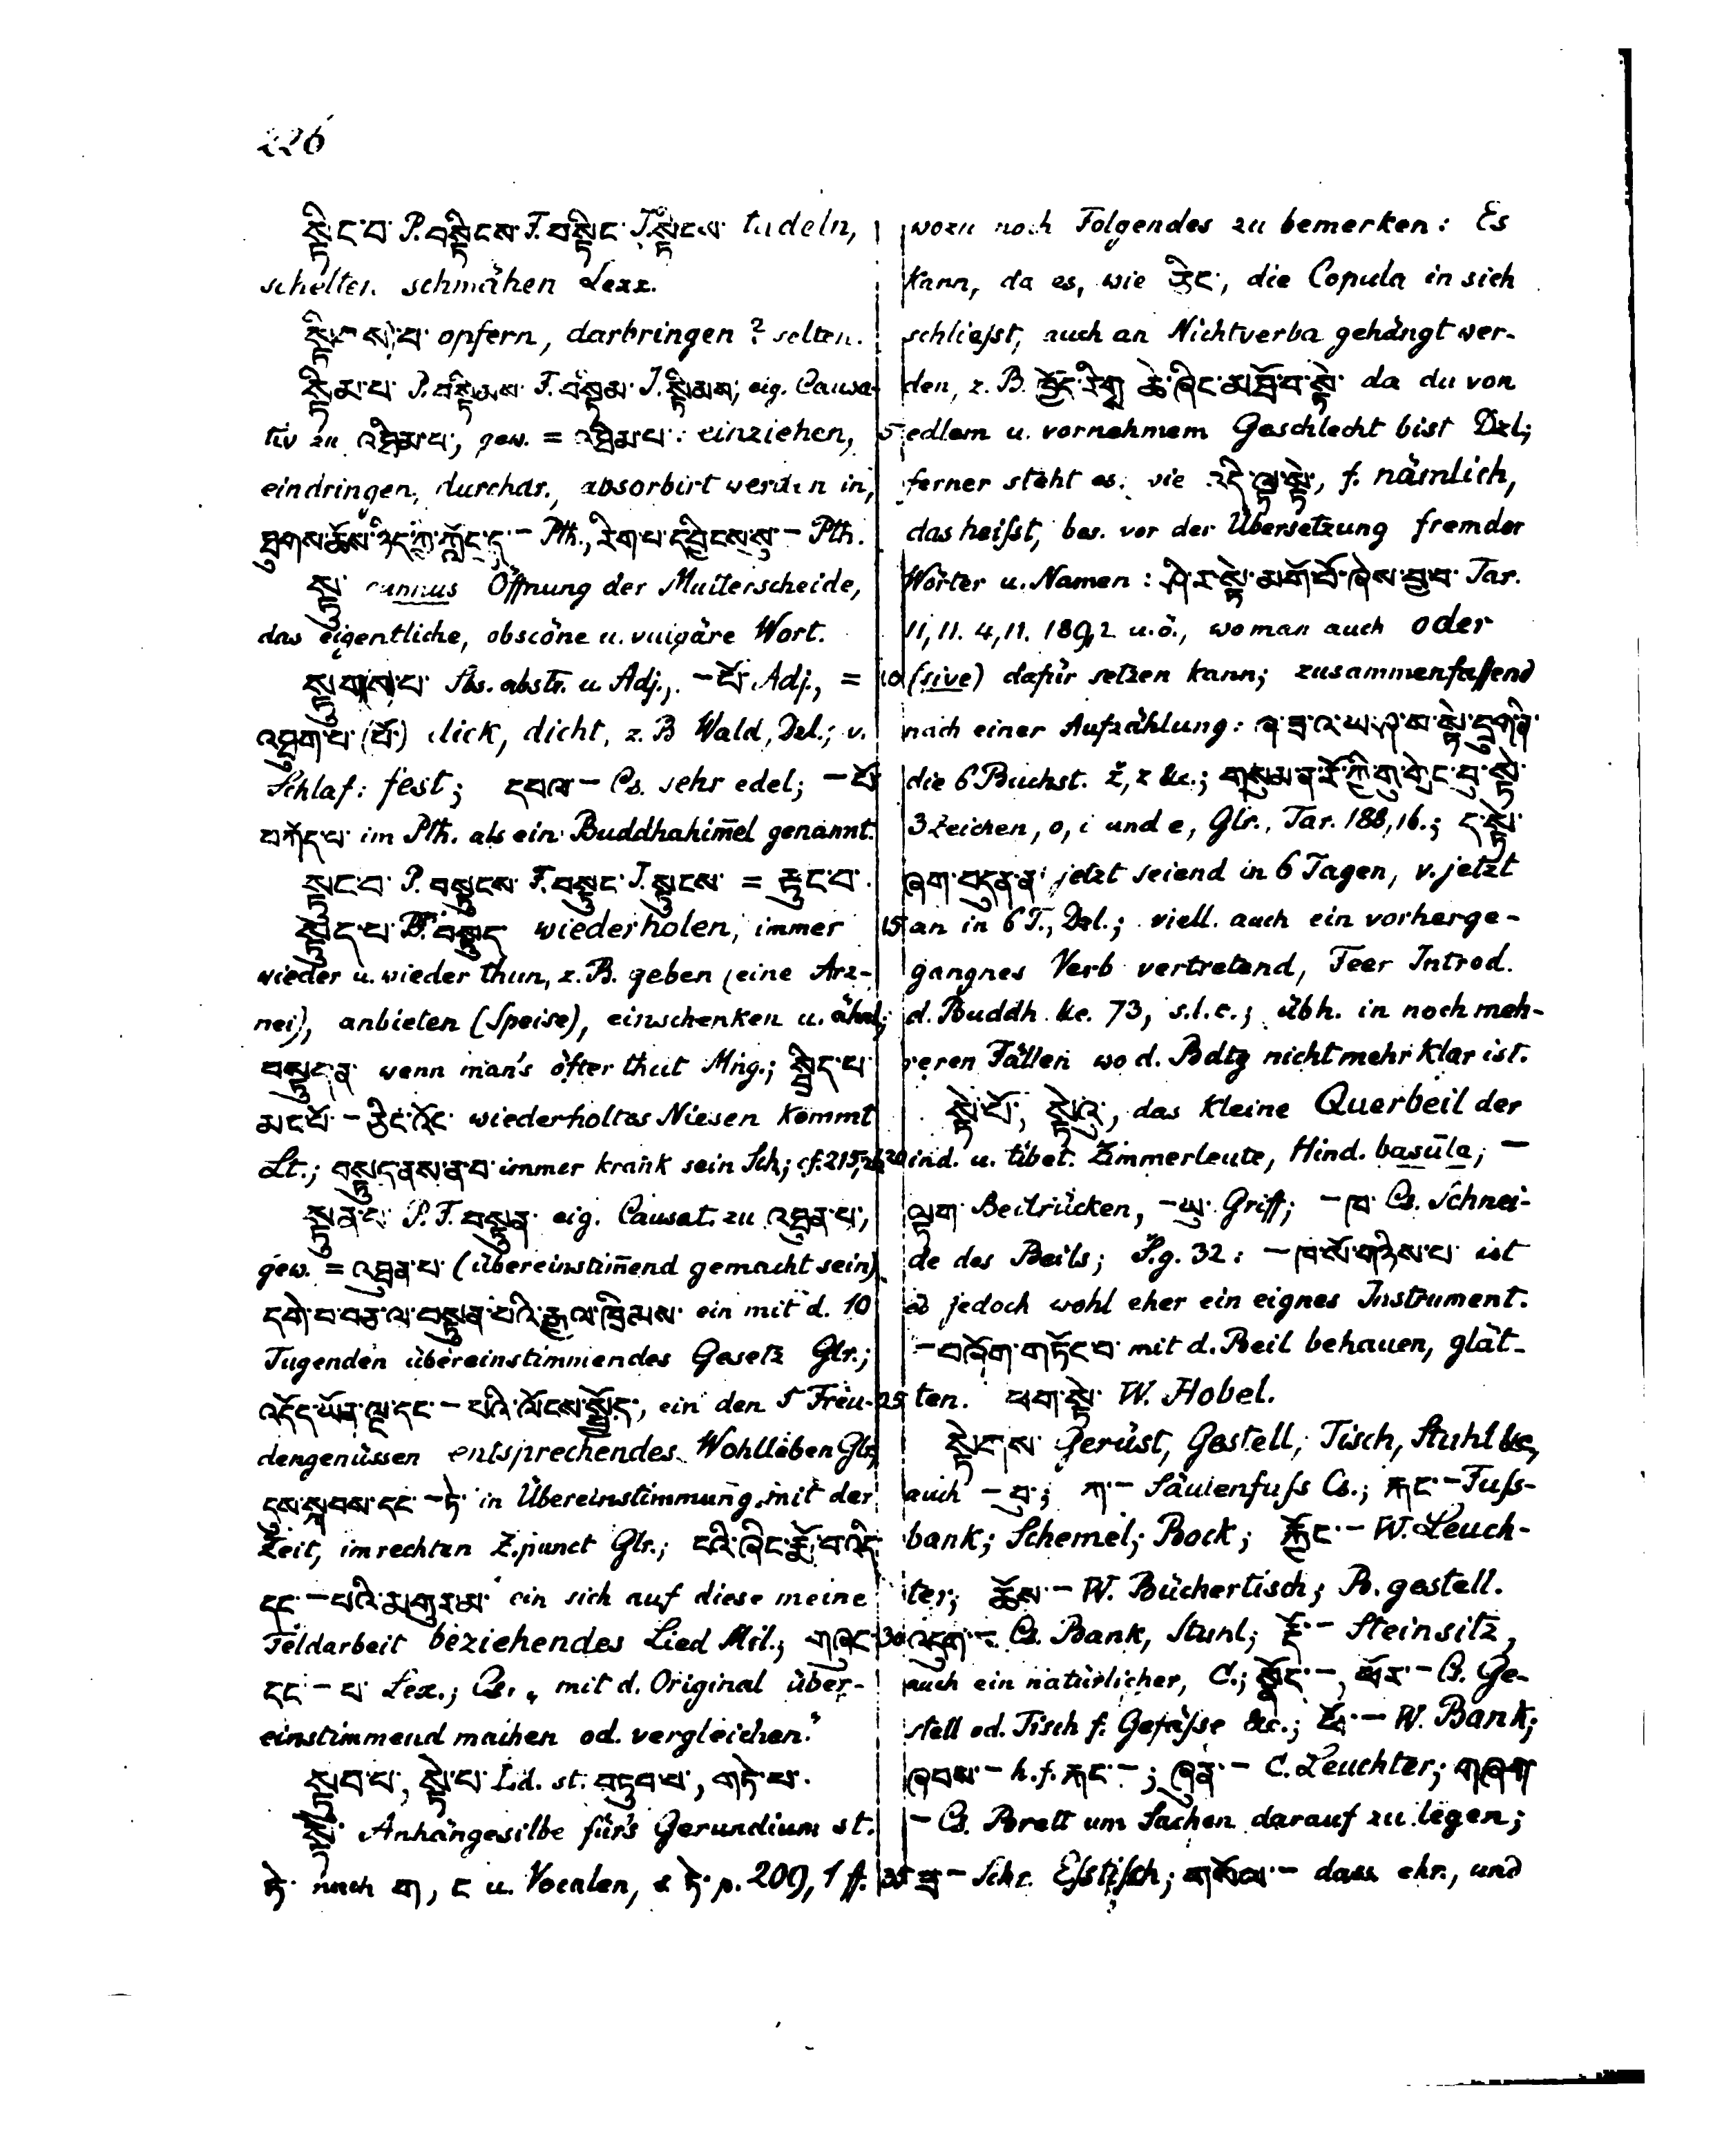 226
སྟིང་བ་ P. བསྟིངས་ F. བསྟིང་ J. སྟིངས་ tadeln,
schelten schmähen Lexx.
opfern, darbringen? selten.
སྟིམ་པ་ P. བསྟིམས་ F. བསྟིམ་ J. སྟིམས་, eig. Causa-
tiv zu འཐིམ་པ་, gew. = འཐིམ་པ་: einziehen,
eindringen, durchdr., absorbirt werden in,
ཐུགས་ – Pth., རིག་པ་དབྱིངས་སུ་ – Pth.
སྟུ་ cunnus Öffnung der Mutterscheide,
das eigentliche, obscöne u. vulgäre Wort.
སྟུག(ས)་པ་ Sbs. abstr. u. Adj., – པོ་ Adj., =
འཐུག་པ་ (པོ་) dick, dicht, z. B Wald, Dzl.; v.
Schlaf: fest; དཔལ་ – Cs. sehr edel; – པོ་
བཀོད་པ་ im Pth. als ein Buddhahim̄el genannt.
སྟུང་བ་ P. བསྟུངས་ F. བསྟུང་ J. སྟུངས་ = རྟུང་བ་.
སྟུད་པ་ P.F. བསྟུད wiederholen, immer
wieder u. wieder thun, z. B. geben (eine Arz-
nei), anbieten (Speise), einschenken u. ähnl;
བསྟུད་ན་ wenn man's öfter thut Mng.; སྦྲིད་པ་
མང་པོ་ – ཅིང་འོང་ wiederholtes Niesen kommt
Lt.; བསྟུད་ནས་ན་བ་ immer krank sein Sch; cf. 215,
སྟུན་པ་ P. F. བསྟུན་ eig. Causat. zu འཐུན་པ་,
gew. = འཐུན་པ་ (übereinstim̄end gemacht sein)
དགེ་བ་བཅུ་ལ་བསྟུན་པའི་རྒྱལ་ཁྲིམས་ ein mit d. 10
Tugenden übereinstimmendes Gesetz Glr.;
འདོད་ཡོན་ལྔ་དང་ – པའི་ལོངས་སྤྱོད་, ein den 5 Freu-
dengenüssen entsprechendes Wohlleben Glr;
དུས་སྐབས་དང་ – ཏེ་ in Übereinstimmung mit der
Zeit, im rechten Z.punct Glr.; ངའི་ཞིང་རྨོ་བ་འདི་
དང་ – པའི་མགུར་མ་ ein sich auf diese meine
Feldarbeit beziehendes Lied Mil.; གཞུང་
དང་ – པ་ Lex.; Cs. „mit d. Original über-
einstimmend machen od. vergleichen."
སྟུབ་པ་, སྟེ་པ་ Ld. st. བཏུབ་པ་, གཏེ་པ་.
སྟེ་ Anhängesilbe für's Gerundium st.
ཏེ་ nach ག, ང u. Vocalen, s ཏེ་ p. 209, 1 ff.
wozu noch Folgendes zu bemerken: Es
kann, da es, wie ཅིང་, die Copula in sich
schließt, auch an Nichtverba gehängt wer-
den, z. B. ཁྱོད་རིགས་ཆེ་ཞིང་མཐོ་བ་སྟེ་ da du von
5 edlem u. vornehmem Geschlecht bist Dzl;
ferner steht es, wie འདི་ལྟ་སྟེ་, f. nämlich,
das heißt, bes. vor der Übersetzung fremder
Wörter u. Namen: ཤི་ར་སྟེ་མགོ་བོ་ཞེས་བྱ་བ་ Tar.
11, 11. 4, 11. 189,2 u. ö., wo man auch oder
10 (sive) dafür setzen kann; zusammenfassend
nach einer Aufzählung: ཞ་ཟ་འ་ཡ་ཤ་ས་སྟེ་དྲུག་ནི་
die 6 Buchst. ž, z &c.; གསུམ་ན་རོ་ཀི་གུ་གྲེང་བུ་སྟེ་
3 Zeichen, o, i und e, Glr., Tar. 188, 16.; ད་སྟེ་
ཞག་བདུན་ན་ jetzt seiend in 6 Tagen, v. jetzt
15 an in 6 T., Dzl.; viell. auch ein vorherge-
gangnes Verb vertretend, Feer Introd.
d. Buddh. &c. 73, s. l. c.; übh. in noch meh-
reren Fällen wo d. Bdtg nicht mehr klar ist.
སྟེ་པོ་, སྟེའུ་, das kleine Querbeil der
20 ind. u. tibet. Zimmerleute, Hind. basūla; –
ལྟག་ Beilrücken, – ཡུ་ Griff; – ཁ་ Cs. Schnei-
de des Beils; S.g. 32: – ཁ་སོ་གཉིས་པ་ ist
es jedoch wohl eher ein eignes Instrument.
– བཞོག་གཏོང་བ་ mit d. Beil behauen, glät-
25 ten. ཕག་སྟེ་ W. Hobel.
སྟེགས་ Gerüst, Gestell, Tisch, Stuhl &c,
auch – བུ་; ཀ་ – Säulenfuß Cs.; རྐང་ – Fuss-
bank; Schemel; Bock; རྐྱོང་ – W. Leuch-
ter; ཆོས་ – W. Büchertisch; B. gestell.
30 འདུག་ – Cs. Bank, Stuhl; རྡོ་ – Steinsitz,
auch ein natürlicher, C.; སྣོད་ –, ཕོར་ – Cs. Ge-
stell od. Tisch f. Gefäße &c.; – W. Bank;
ཞབས་ – h. f. རྐང་ –; ཞུན་ – C. Leuchter; གཞག
– Cs. Brett um Sachen darauf zu legen;
35 ཟ་ – Schr. Eßtisch; གསོལ་ – dass ehr., und